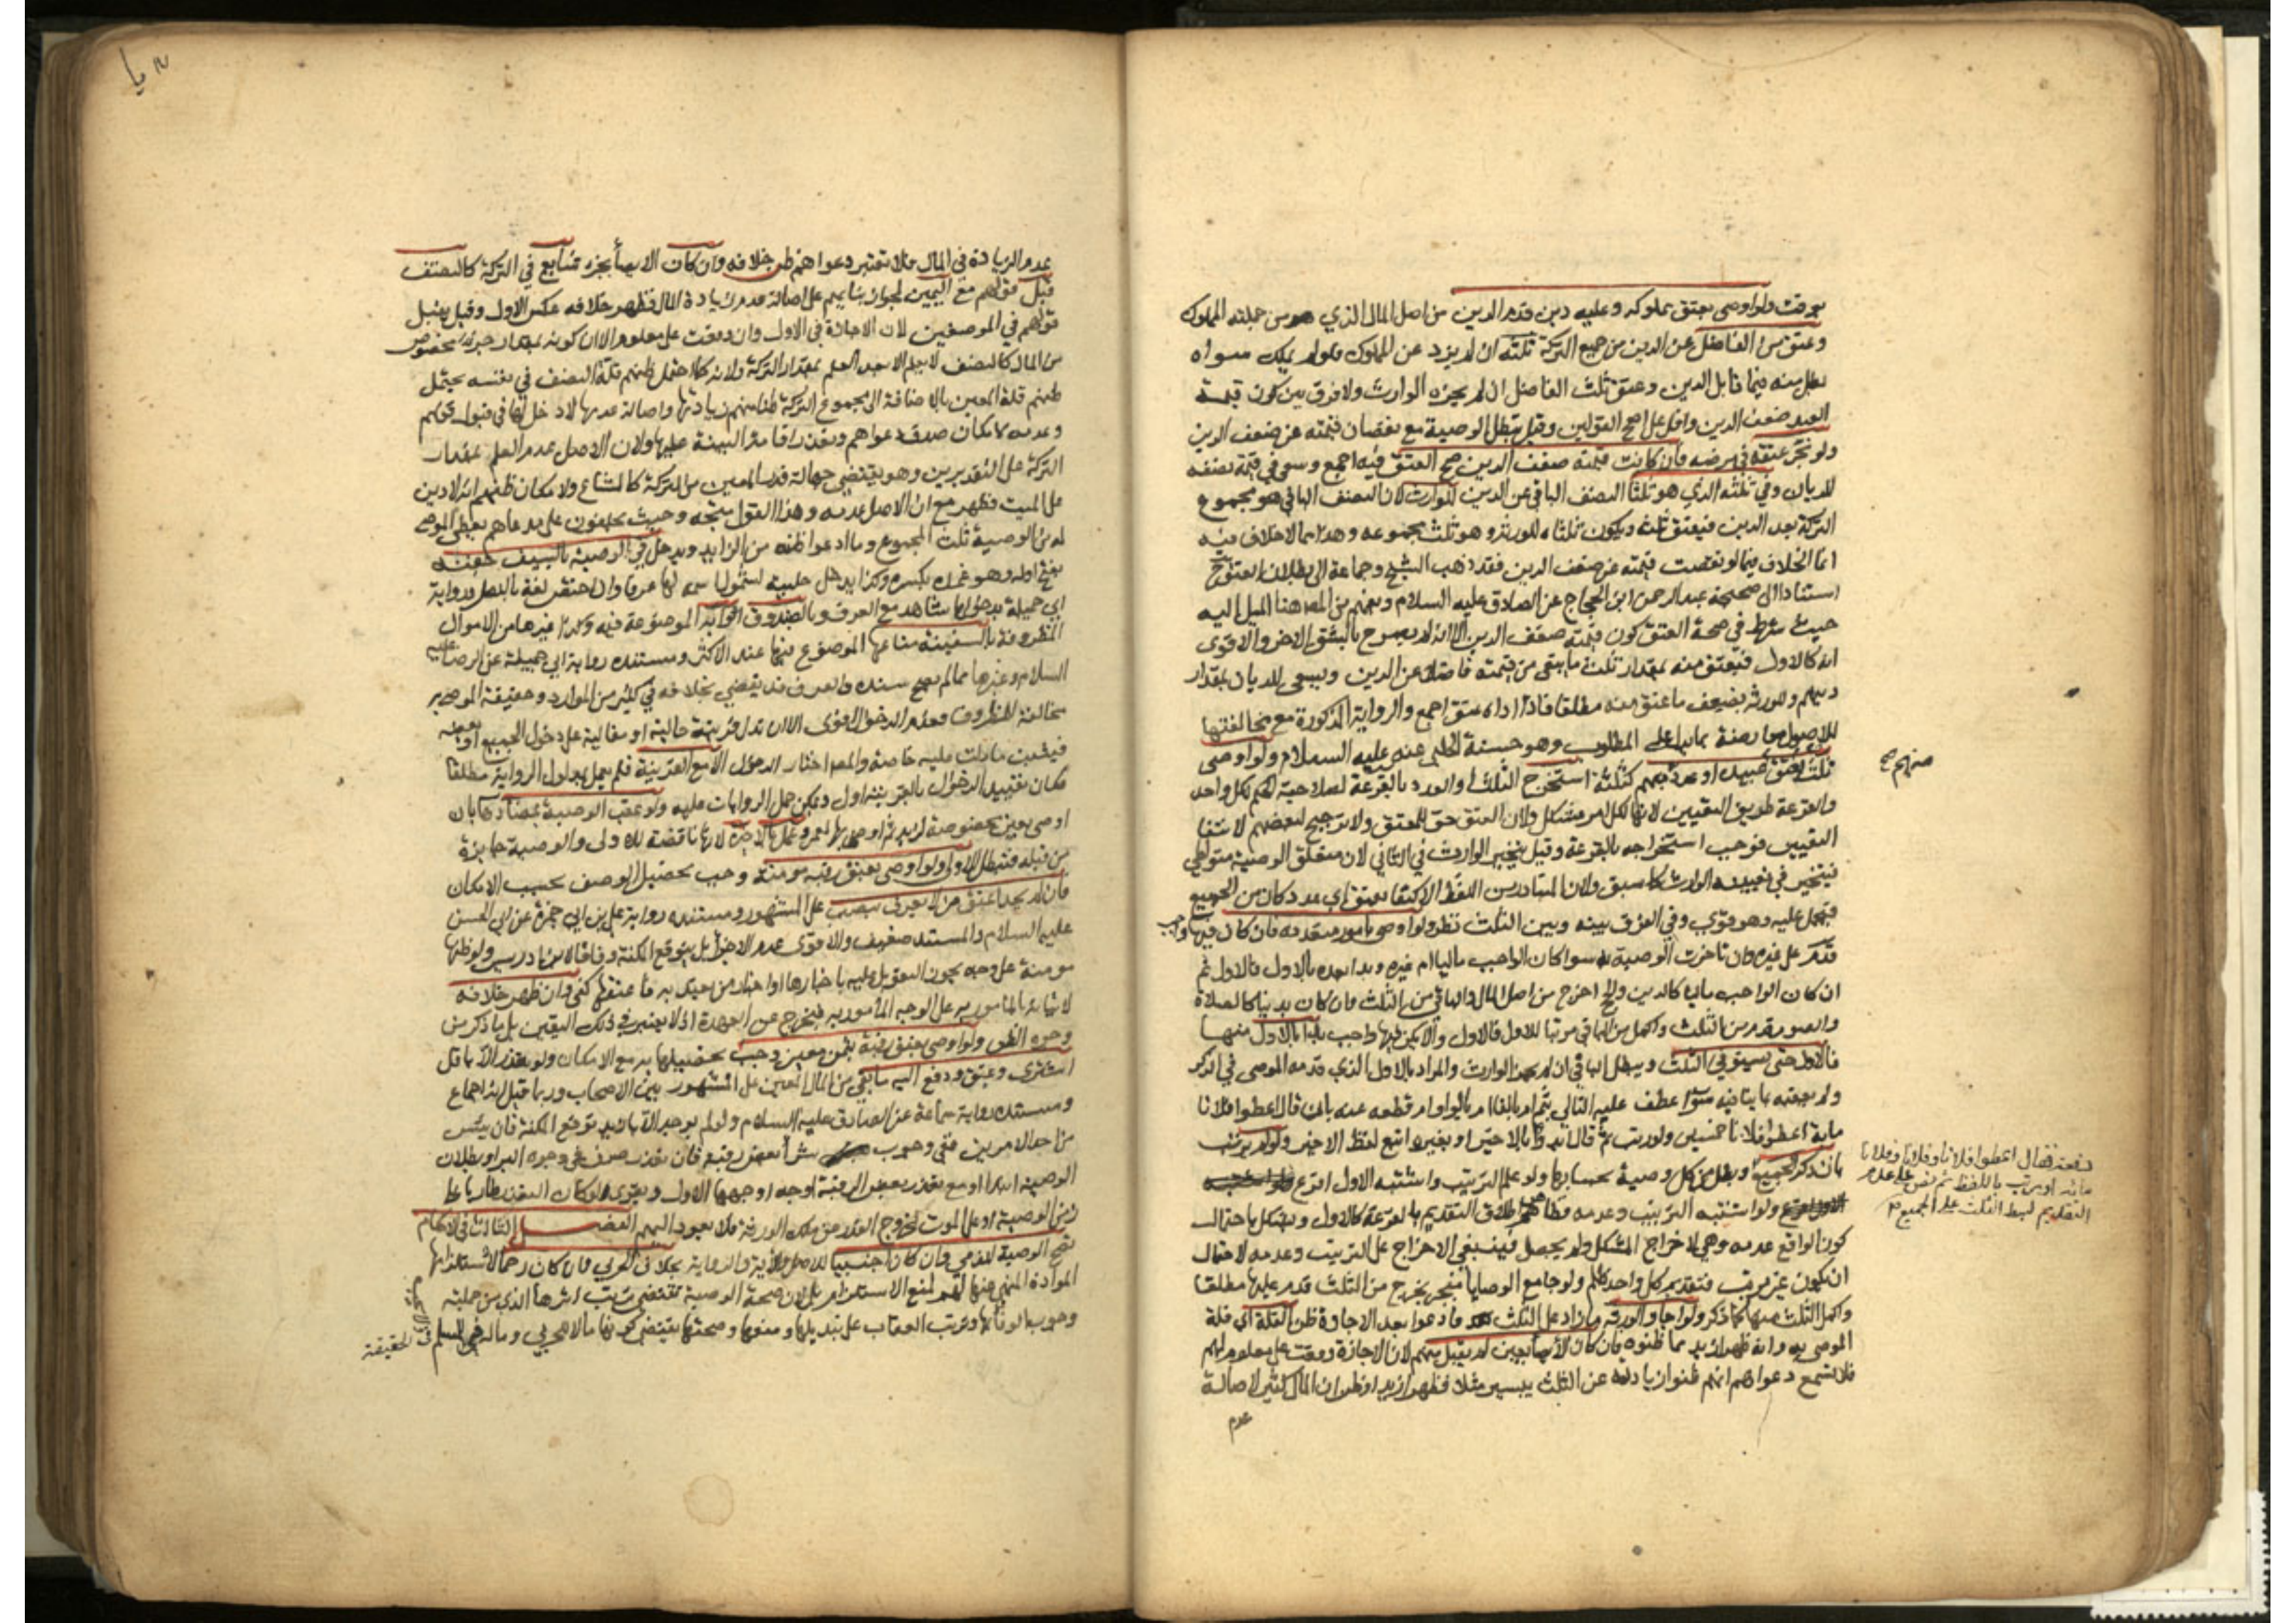 ولو اوصى بعتق مملوكه وعليه دين قدم الدين من اصل المال الذي هو من جملته المملوك
وعتق من الفاضل عن الدين من جميع التركة ثلثه ان لم يزد عن المملوك فلو لم يملك سواه
بطل منه فيما قابل الدين وعتق ثلث الفاضل ان لم يجزه الوارث ولا فرق بين كون قيمة
العبد ضعف الدين واقل على اصح القولين وقيل تبطل الوصية مع نقصان قيمته عن ضعف الدين
ولو نجز عتقه في مرضه فان كانت قيمته ضعف الدين صح العتق فيه اجمع وسعى في قيمة نصفه
للديان وفي ثلثه الذي هو ثلثا النصف الباقي عن الدين للوارث لان النصف الباقي هو مجموع
التركة بعد الدين فيعتق ثلثه ويكون ثلثاه للورثة وهو ثلث مجموعه وهذا مما لا خلاف فيه
انما الخلاف فيما لو نقصت قيمته عن ضعف الدين فقد ذهب الشيخ وجماعة الى بطلان العتق ح
استنادا الى صحيحة عبد الرحمن ابن الحجاج عن الصادق عليه السلام ويفهم من المص هنا الميل اليه
حيث شرط في صحة العتق كون قيمته ضعف الدين الا انه لم يصرح بالشق الاخر والاقوى
انه كالاول فيعتق منه بمقدار ثلث ما يبقى من قيمته فاضلا عن الدين ويسعى للديان بمقدار
دينهم وللورثة بضعف ما عتق منه مطلقا فاذا اداه عتق اجمع والرواية المذكورة مع مخالفتها
للاصول معارضة بما يدل على المطلوب وهو حسنة الحلبي عنه عليه السلام ولو اوصى
بعتق ثلث عبيده او عدد مبهم كثلثة استخرج الثلث والعدد بالقرعة لصلاحية الحكم لكل واحد
منهم صح
والقرعة طريق التعيين لانها لكل امر مشكل ولان العتق حق للمعتق ولا ترجيح لبعضهم لانتفا
التعيين فوجب استخراجه بالقرعة وقيل يتخير الوارث في الثاني لان متعلق الوصية متواطي
فيتخير في تعيينه الوارث كما سبق ولان المتبادر من اللفظ الاكتفا بعتق اي عدد كان من الجميع
فيحمل عليه وهو قوي وفي الفرق بينه وبين الثلث نظر ولو اوصى بامور متعددة فان كان فيها واجب
قدم على غيره وان تاخرت الوصية به سوا كان الواجب ماليا ام غيره وبدا بعده بالاول فالاول ثم
ان كان الواجب ماليا كالدين والحج اخرج من اصل المال والباقي من الثلث وان كان بدنيا كالصلاة
والصوم قدم من الثلث واكمل من الباقي مرتبا للاول فالاول والا يكن فيها واجب بدا بالاول منها
فالاول حتى يستوفى الثلث ويبطل الباقي ان لم يجز الوارث والمراد بالاول الذي قدمه الموصى في الذكر
ولم يعقبه بما ينافيه سوا عطف عليه التالي بثم ام بالفا ام بالواو ام قطعه عنه بان قال اعطوا فلانا
ماية اعطوا فلانا خمسين ولو رتب ثم قال ابدؤا بالاخير او بغيره اتبع لفظ الاخير ولو لم يرتب
بان ذكر الجميع دفعة فقال اعطوا فلانا وفلانا وفلانا
مائة او رتب باللفظ ثم نص على عدم
التقديم بسط الثلث على الجميع
وبطل من كل وصية بحسابها ولو علم الترتيب واشتبه الاول اقرع
ولو اشتبه الترتيب وعدمه فظاهرهم اطلاق التقديم بالقرعة كالاول ويشكل باحتمال
كون الواقع عدمه وهي لاخراج المشكل ولم يحصل فينبغي الاخراج على الترتيب وعدمه لاحتمال
ان يكون غير مرتب فتقديم كل واحد ظلم ولو جامع الوصايا منجز يخرج من الثلث قدم عليها مطلقا
واكمل الثلث منها كما ذكر ولو اجاز الورثة ما زاد على الثلث فادعوا بعد الاجازة ظن القلة اي قلة
الموصى به وانه ظهر ازيد مما ظنوه فان كان الايصا بعين لم يقبل منهم لان الاجازة وقعت على معلوم لهم
فلا تسمع دعواهم انهم ظنوا زيادته عن الثلث بيسير مثلا فظهر ازيد او ظن ان المال كثير لاصالة
عدم
بعدم الزيادة في المال فلا تعتبر دعواهم ظن خلافه وان كان الايصا بجزء شايع في التركة كالنصف
قبل قولهم مع اليمين لجواز بنايهم على اصالة عدم زيادة المال فظهر خلافه عكس الاول وقيل يقبل
قولهم في الموضعين لان الاجازة في الاول وان وقعت على معلوم الا ان كونه بمقدار جزء مخصوص
من المال كالنصف لا يعلم الا بعد العلم بمقدار التركة ولانه كما احتمل ظنهم قلة النصف في نفسه يحتمل
ظنهم قلة المعين بالاضافة الى مجموع التركة ظنا منهم زيادتها واصالة عدمها لا دخل لها في قبول قولهم
وعدمه لامكان صدق دعواهم وتعذر اقامة البينة عليها ولان الاصل عدم العلم بمقدار
التركة على التقديرين وهو يقتضي جهالة قدر المعين من التركة كالمشاع ولامكان ظنهم انه لا دين
على الميت فظهر مع ان الاصل عدمه وهذا القول متجه وحيث يحلفون على مدعاهم يعطى الموصى
له من الوصية ثلث المجموع وما ادعوا ظنه من الزايد ويدخل في الوصية بالسيف جفنه
بفتح اوله وهو غمده بكسره وكذا يدخل حليته لشمول اسمه لها عرفا وان اختص لغة بالنصل ورواية
ابي جميلة بدخولها شاهد مع العرف وبالصندوق اثوابه الموضوعة فيه وكذا غيرها من الاموال
المظروفة وبالسفينة متاعها الموضوع فيها عند الاكثر ومستنده رواية ابي جميلة عن الرضا عليه
السلام وغيرها مما لم يصح سنده والعرف قد يقضي بخلافه في كثير من الموارد وحقيقة الموصى به
مخالفة للمظروف فعدم الدخول اقوى الا ان تدل قرينة حالية او مقالية على دخول الجميع او بعضه
فيثبت ما دلت عليه خاصة والمص اختار الدخول الا مع القرينة فلم يعمل بمدلول الرواية مطلقا
فكان تقييد الدخول بالقرينة اولى ويمكن حمل الروايات عليه ولو عقب الوصية بمضادها بان
اوصى بعين مخصوصة لزيد ثم اوصى بها لعمرو عمل بالاخيرة لانها ناقضة للاولى والوصية جايزة
من قبله فتبطل الاولى ولو اوصى بعتق رقبة مومنة وجب تحصيل الوصف بحسب الامكان
فان لم يجد اعتق من لا يعرف بنصب على المشهور ومستنده رواية علي بن ابي حمزة عن ابي الحسن
عليه السلام والمستند ضعيف والاقوى عدم الاجزا بل يتوقع المكنة وفاقا لابن ادريس ولو ظنها
مومنة على وجه يجوز التعويل عليه باخبارها او اخبار من يعتد به فاعتقها كفى وان ظهر خلافه
لاتيانه بالمامور به على الوجه المأمور به فيخرج عن العهدة اذ لا يعتبر في ذلك اليقين بل ما ذكر من
وجوه الظن ولو اوصى بعتق رقبة بثمن معين وجب تحصيلها به مع الامكان ولو تعذر الا باقل
اشترى وعتق ودفع اليه ما بقي من المال المعين على المشهور بين الاصحاب وربما قيل انه اجماع
ومستنده رواية سماعة عن الصادق عليه السلام ولو لم يوجد الا بازيد توقع المكنة فان يئس
من احد الامرين ففي وجوب شرا بعض رقبة فان تعذر صرف في وجوه البر او بطلان
الوصية ابتدا او مع تعذر بعض الرقبة اوجه اوجهها الاول ويقوى لو كان التعذر طاريا على
زمن الوصية او على الموت لخروج القدر عن ملك الورثة فلا يعود اليهم الفصل الثالث في الاحكام
تصح الوصية للذمي وان كان اجنبيا للاصل والاية والرواية بخلاف الحربي وان كان رحما لاستلزامها
الموادة المنهي عنها لهم لمنع الاستلزام بل لان صحة الوصية تقتضي ترتب اثرها الذي من جملته
وجوب الوفا بها وترتب العقاب على تبديلها ومنعها وصحتها يقتضي كونها مالا للحربي وماله فيء للمسلم في الحقيقة